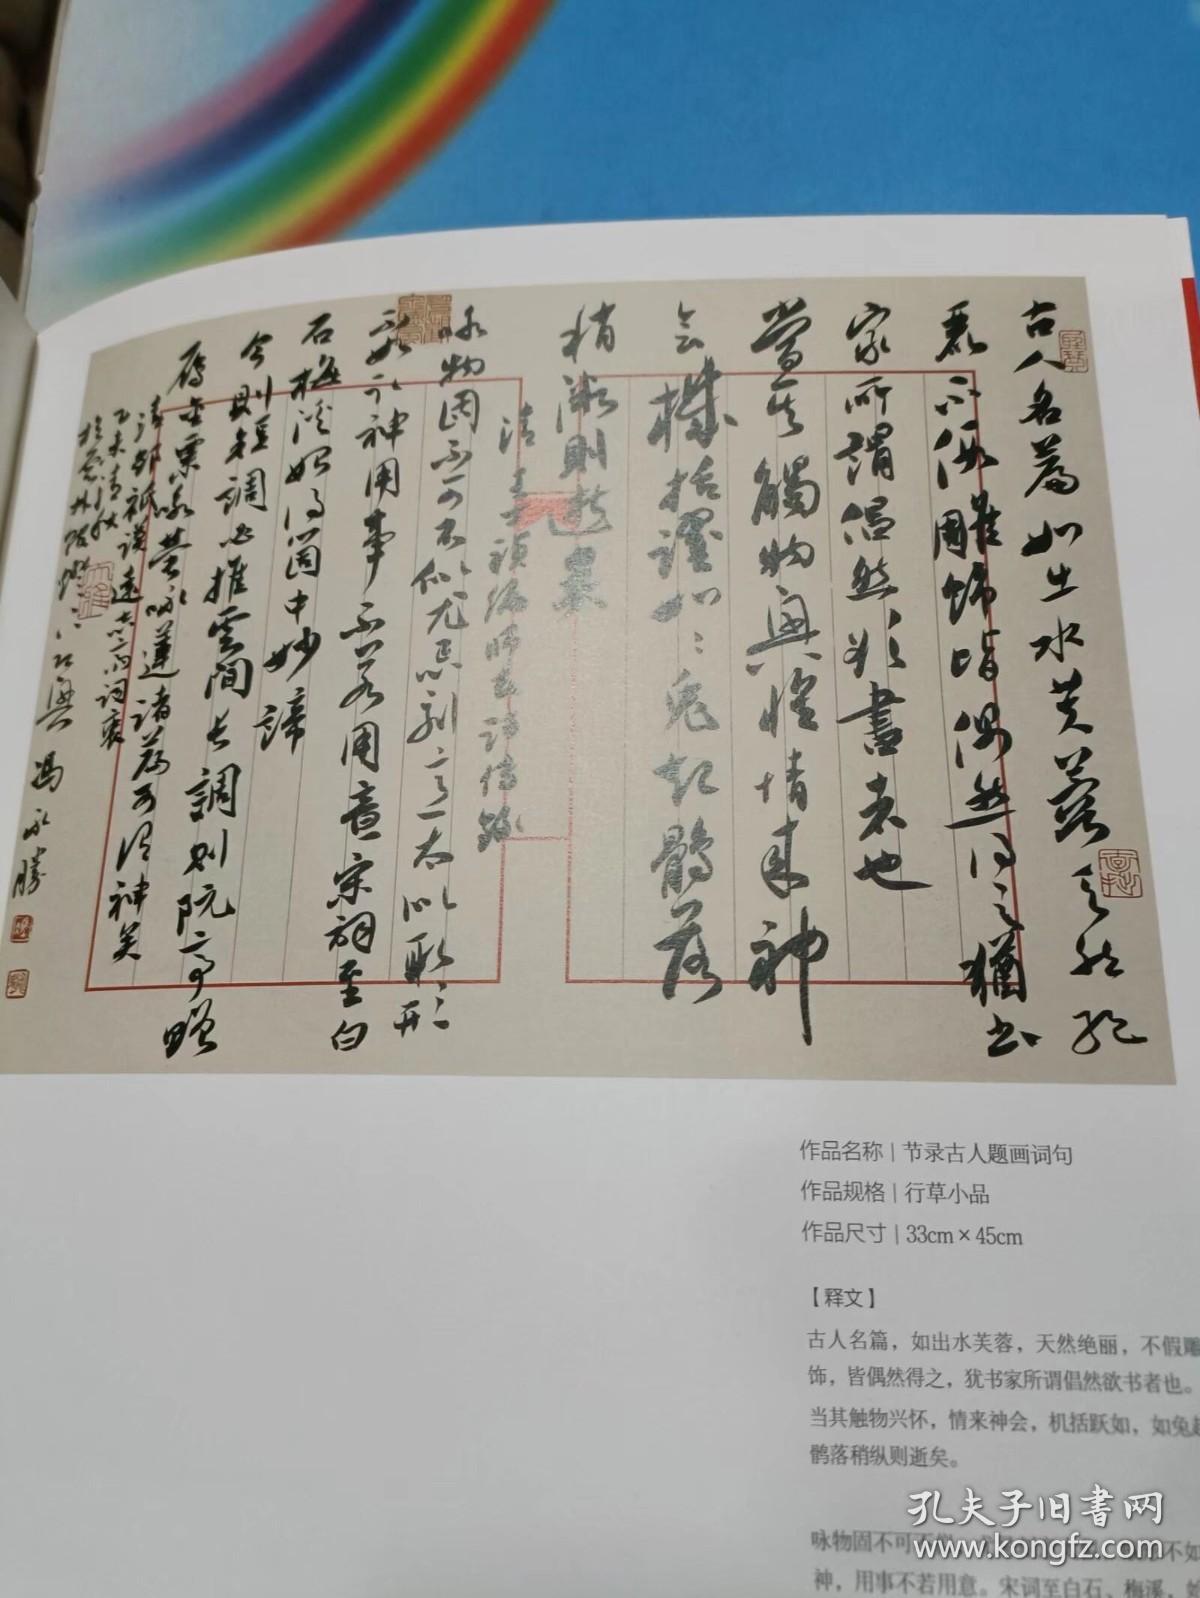 古人名篇如出水芙蓉天然绝
丽不假雕饰皆偶然得之犹书
家所谓倡然欲书者也
当其触物兴怀情来神
会机括跃如如兔起鹘落
稍纵则逝矣
咏物固不可不似尤忌刻意太似取形
不如取神用事不若用意宋词至白
石梅溪始得个中妙谛
今则短调必推云间长调则阮亭赠
雁金粟咏萤咏莲诸篇可谓神矣
清邹祗谟远志斋词衷
乙未清秋
冯永胜
作品名称 | 节录古人题画词句
作品规格 | 行草小品
作品尺寸 | 33cm × 45cm
【释文】
古人名篇，如出水芙蓉，天然绝丽，不假雕
饰，皆偶然得之，犹书家所谓倡然欲书者也。
当其触物兴怀，情来神会，机括跃如，如兔起
鹘落稍纵则逝矣。
咏物固不可不似，不如
神，用事不若用意。宋词至白石、梅溪，始
孔夫子旧书网
www.kongfz.com